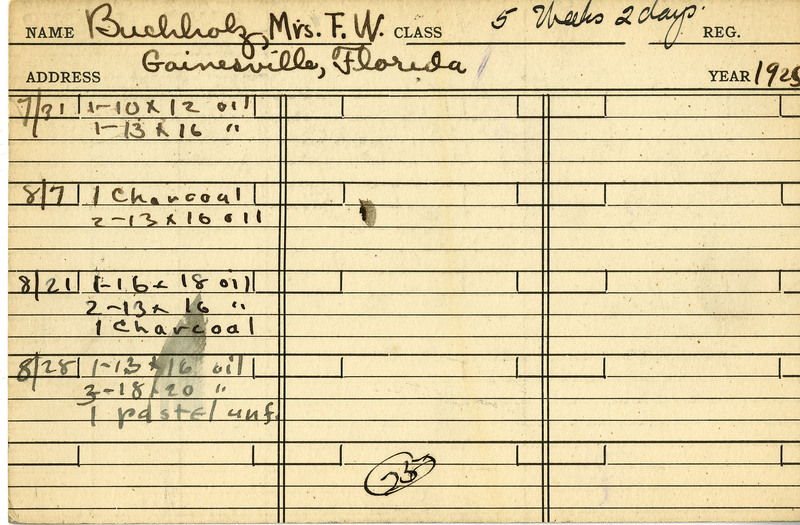 NAME Buchholz, Mrs. F. W. CLASS 5 Weeks 2 days. REG.
ADDRESS Gainesville, Florida YEAR 1925
7/31 1-10 x 12 oil
1-13 x 16 "
8/7 1 Charcoal
2-13 x 16 oil
8/21 1-16 x 18 oil
2-13 x 16 "
1 Charcoal
8/28 1-13 x 16 oil
3-18 x 20 "
1 pastel unf.
25